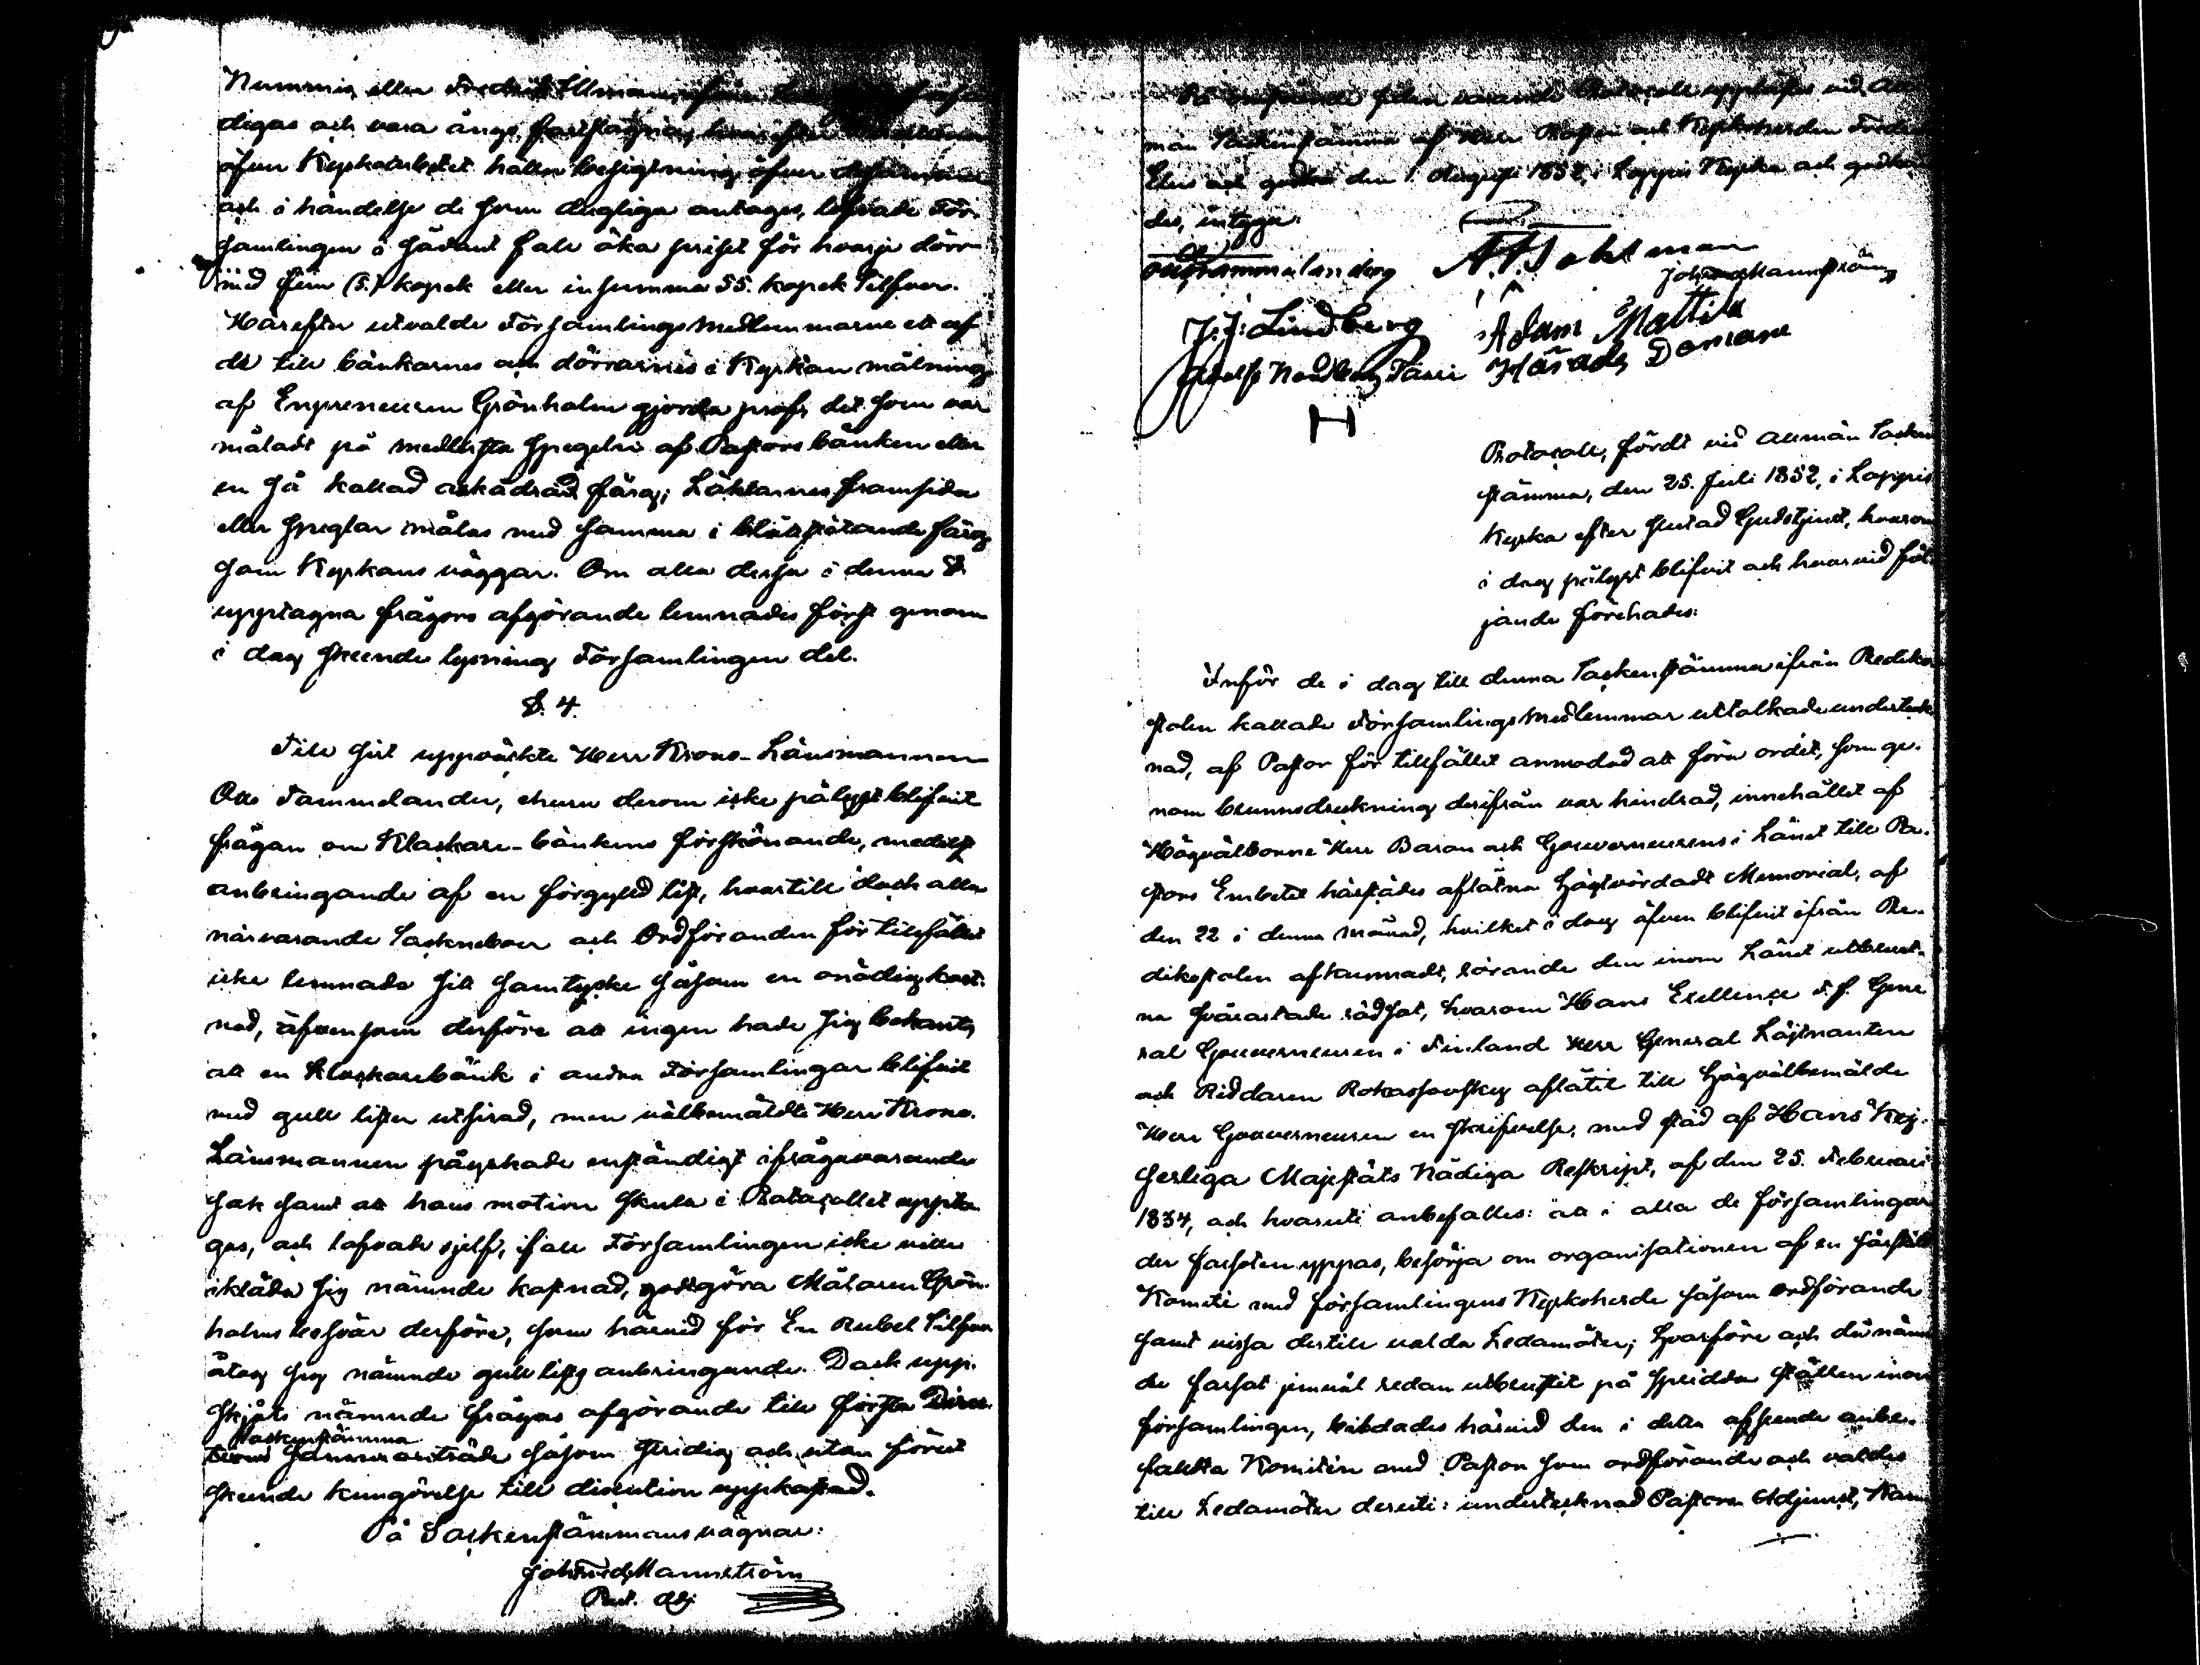 Nummis eller Fredrik Ullman,
digas och vara ångs. fastslagna, hvar efter
öfver Kyrkoarbetet håller besigtning öfver
och i händelse de som dugliga antages, lofvade För-
samlingen i sådant fall öka priset för hvarje dörr
med fem (5.) kopek eller in summa 55. kopek Silfver.
Härefter utvalde Församlings Medlemmarne ett af
de till bänkarnes och dörrarnes i Kyrkan målning
af Enpreneuren Grönholm gjorda prof, det som var
måladt på medlersta spegeln af Pastors bänken eller
en så kallad askådrad färg; Läktarnes framsida
eller speglar målas med samma i blått stötande färg
som Kyrkans väggar. Om alla dessa i denna §.
upptagna frågors afgörande lemnades först genom
i dag skeende lysning Församlingen del.
§. 4.
Till sist uppväckte Herr Krono-Länsmannen
Otto Tammelander, ehuru derom icke pålyst blifvit
frågan om Klockare-bänkens förskönande, medelst
anbringande af en förgylld list, hvartill dock alla
närvarande Sockneboer och Ordföranden för tillfället
icke lemnade sitt samtycke såsom en onödig kost-
nad, äfvensom derföre att ingen hade sig bekant,
att en Klockarebänk i andra Församlingar blifvit
med gull lister utsirad, men välbemäldte Herr Krono-
Länsmannen påyrkade enständigt ifrågavarande
sak samt att hans motion skulle i Protocollet uppta-
gas, och lofvade sjelf, ifall Församlingen icke ville
ikläda sig nämnde kostnad, godtgöra Målaren Grön-
holms besvär derföre, som härvid för En Rubel Silfver
åtog sig nämnde gull list anbringande. Dock upp-
skjöts nämnde frågas afgörande till första Direc-
Sockenstämma
tions sammanträde såsom stridig och utan förut
skeende kungörelse till disciution uppkastad.
På Sockenstämmans vägnar:
Joh Fredr Mannström
Past. Adj.
På enahanda sedan varande Protocoll upplästes vid All-
män Sockenstämma af Herr Prosten och Kyrkoherden Fredr
den 1. Augusti 1852, i Loppis Kyrka och godkän-
des, intyga:
Otto Tammelander A. F. Bohlman
Joh Fredr Mannström
J. J. Lindberg Adam Mattila
Adolf Nordberg Härads Domare
H
Protocoll, fördt vid Allmän Socken
stämma, den 25. Juli 1852, i Loppis
Kyrka efter slutad Gudstjenst, hvarom
i dag pålyst blifvit och hvarvid föl-
jande förehades:
Inför de i dag till denna Sockenstämma ifrån Predik-
stolen kallade Församlings Medlemmar uttalkade underteck-
nad, af Pastor för tillfället anmodad att föra ordet, som ge-
nom brunnsdrickning derifrån var hindrad, innehållet af
Högvälborne Herr Baron och Gouverneurens i Länet till Pa-
stors Embetet härstädes aflåtna högtvördadt Memorial, af
den 22 i denna månad, hvilket i dag äfven blifvit ifrån Pre-
dikstolen afkunnadt, rörande den inom Länet utbrust-
na svårartade rödsot, hvarom Hans Excellence T.f. Gene
ral Gouverneuren i Finland Herr General Löjtnanten
och Riddaren Rokassowsky aflåtit till högvälbemälde
Herr Gouverneuren en skrifvelse, med stöd af Hans Kej-
serliga Majestäts Nådiga Reskript, af den 25. Februari
1834, och hvaruti anbefalles: att i alla de församlingar
der farsoten yppas, besörja om organisationen af en särskild
Komité med församlingens Kyrkoherde såsom ordförande
samt vissa dertill valda Ledamöter; hvarföre och då nämn-
de farsot jemväl redan utbrustit på spridda ställen inom
församlingen, bildades härvid den i detta afseende anbe-
fallta Komitén med Pastor som ordförande och valdes
till Ledamöter deruti: undertecknad Pastors Adjunct, Kro